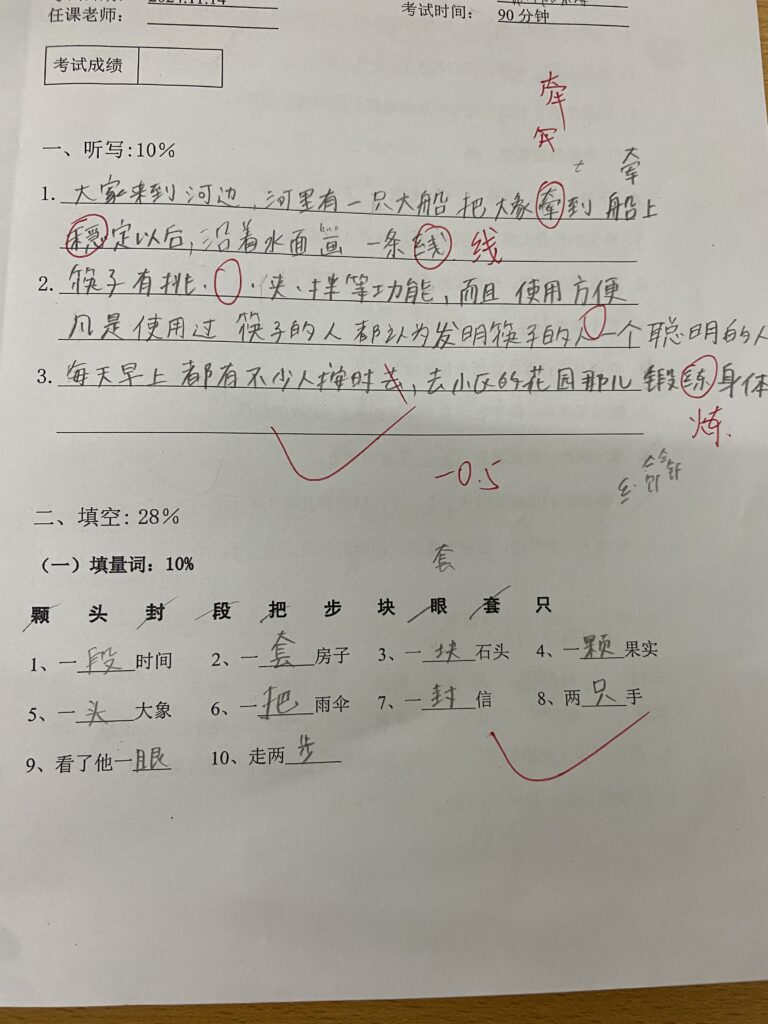 2024.11.14
任课老师：
考试时间： 90 分钟
考试成绩
牵
一、听写:10%
牵
1. 大家来到河边，河里有一只大船 把大象牵到 船上
稳定以后，沿着水面画 一条线 线
2. 筷子有挑、 、夹、拌等功能，而且 使用方便
凡是使用过 筷子的人 都认为发明筷子的人一个聪明的人
3. 每天早上 都有不少人按时去，去小区的花园那儿 锻练身体
炼.
-0.5
二、填空: 28%
（一）填量词：10%
套
颗 头 封 段 把 步 块 眼 套 只
1、一段时间 2、一套房子 3、一块石头 4、一颗果实
5、一头大象 6、一把雨伞 7、一封信 8、两只手
9、看了他一眼 10、走两步